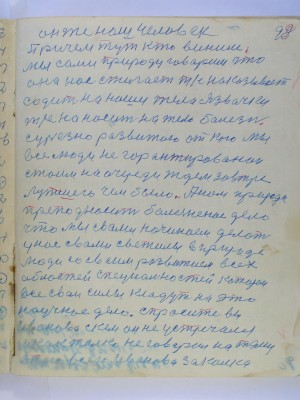 он же наш человек 92
Причем тут кто винише.
мы сами природу говорим что
она нас стигает т/е наказывает
содит на наши тела язвочки
т/е наносит на тело болезн.
сурезно развитого от кого мы
все люди не гарантированаи
стоим на очереди ждем завтре
лутшего чем было. А нам природа
преподносит болезненое дело
что мы с вами начинаем делат
у нас с вами светили в природе
люди со своим развитием всех
областей специалностей которы
все сваи силы кладут на это
научное дело. спросите вы
Иванова с кем он не встречался
не говорил на тему
Иванова закалка